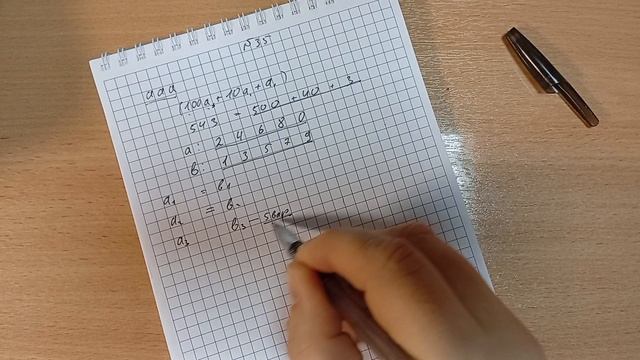 № 35
aaa
(100a₃ + 10a₂ + a₁)
543 = 500 + 40 + 3
a: 2 4 6 8 0
b: 1 3 5 7 9
a₁ = b₁
a₂ = b₂
a₃ b₃ - 5 вар